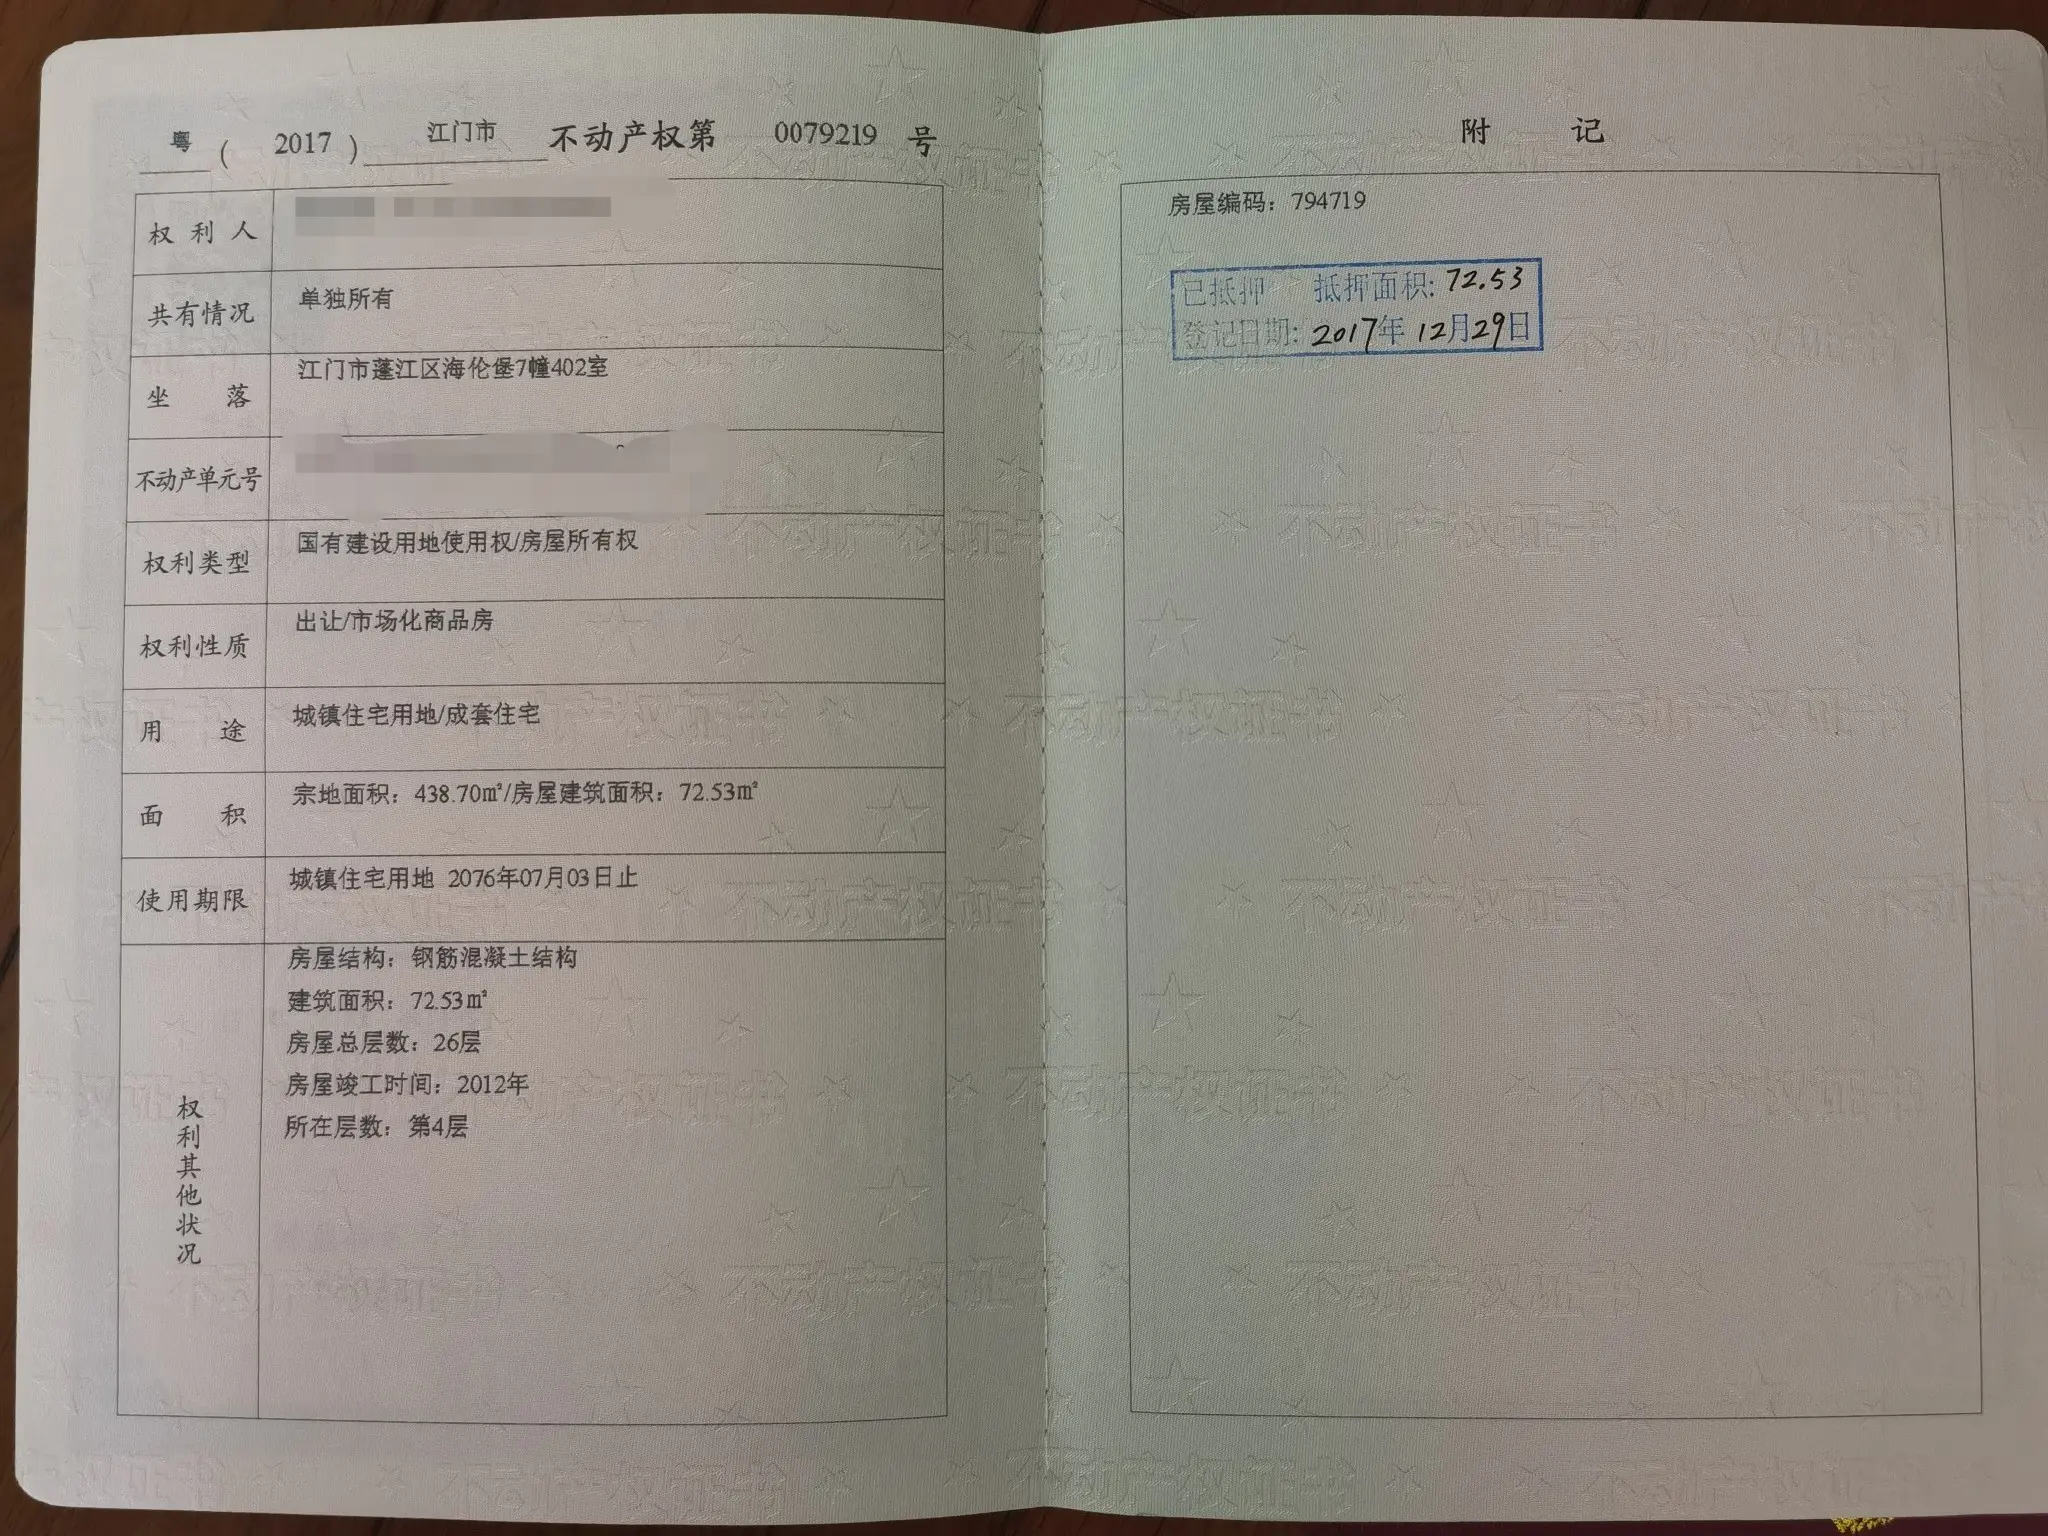 粤 ( 2017 ) 江门市 不动产权第 0079219 号
权利人
共有情况 单独所有
坐落 江门市蓬江区海伦堡7幢402室
不动产单元号
权利类型 国有建设用地使用权/房屋所有权
权利性质 出让/市场化商品房
用途 城镇住宅用地/成套住宅
面积 宗地面积：438.70㎡/房屋建筑面积：72.53㎡
使用期限 城镇住宅用地 2076年07月03日止
权利其他状况
房屋结构：钢筋混凝土结构
建筑面积：72.53㎡
房屋总层数：26层
房屋竣工时间：2012年
所在层数：第4层
附记
房屋编码：794719
已抵押 抵押面积: 72.53
登记日期: 2017年 12月29日